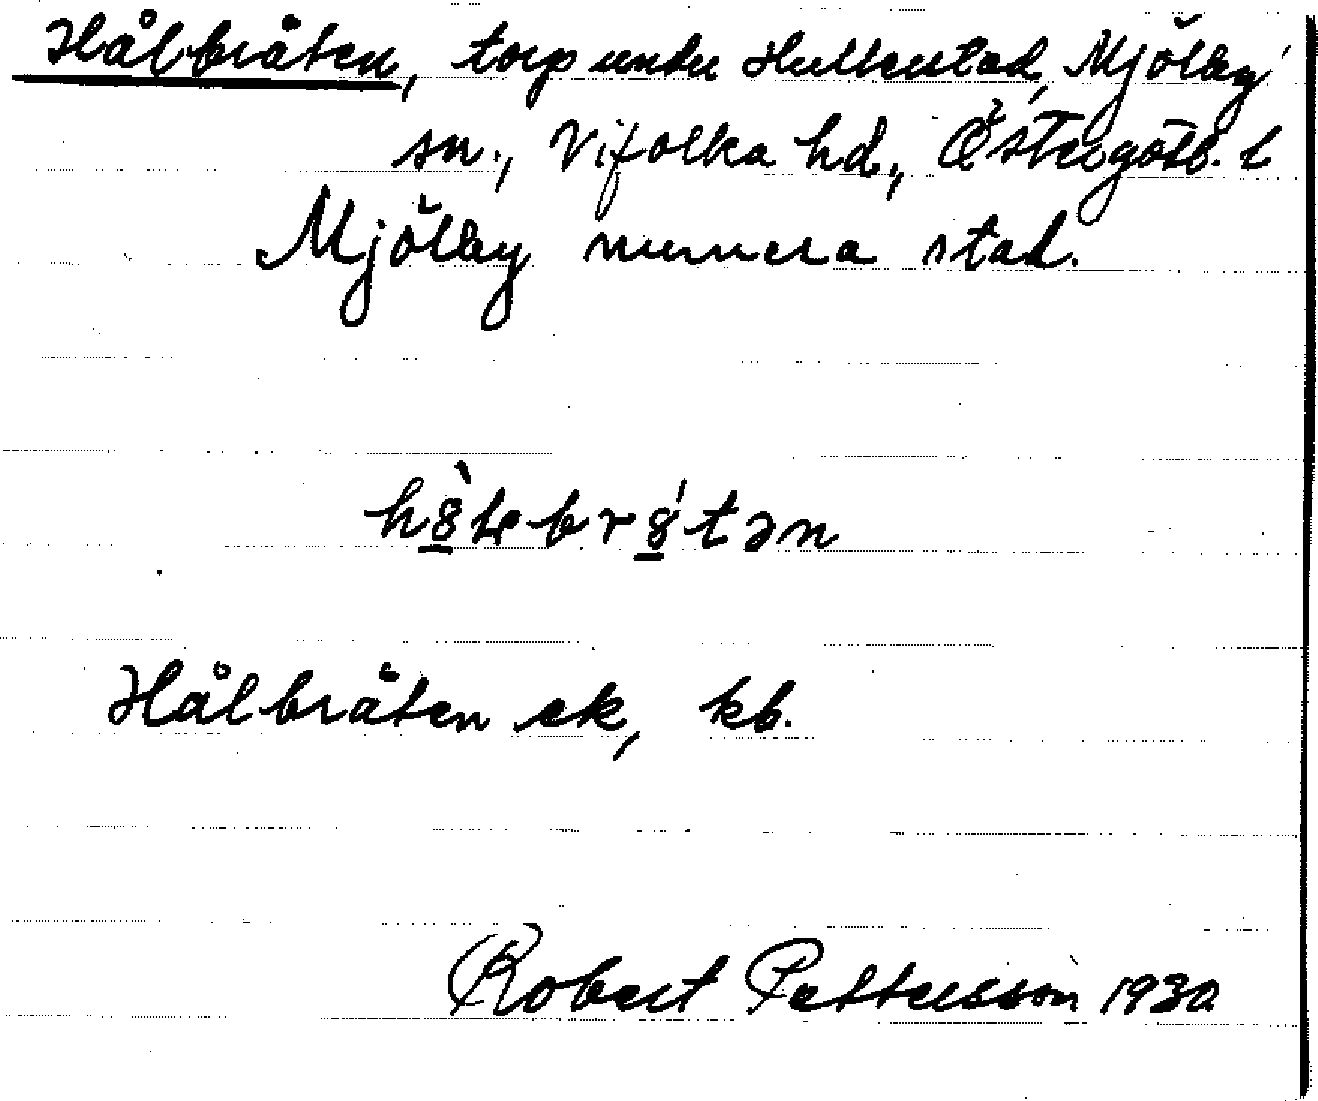 Hålbråten, torp under Hulterstad, Mjölby
sn., Vifolka hd., Östergötl. l
Mjölby numera stad.
Hålbråten ek, kb.
Robert Pettersson 1930